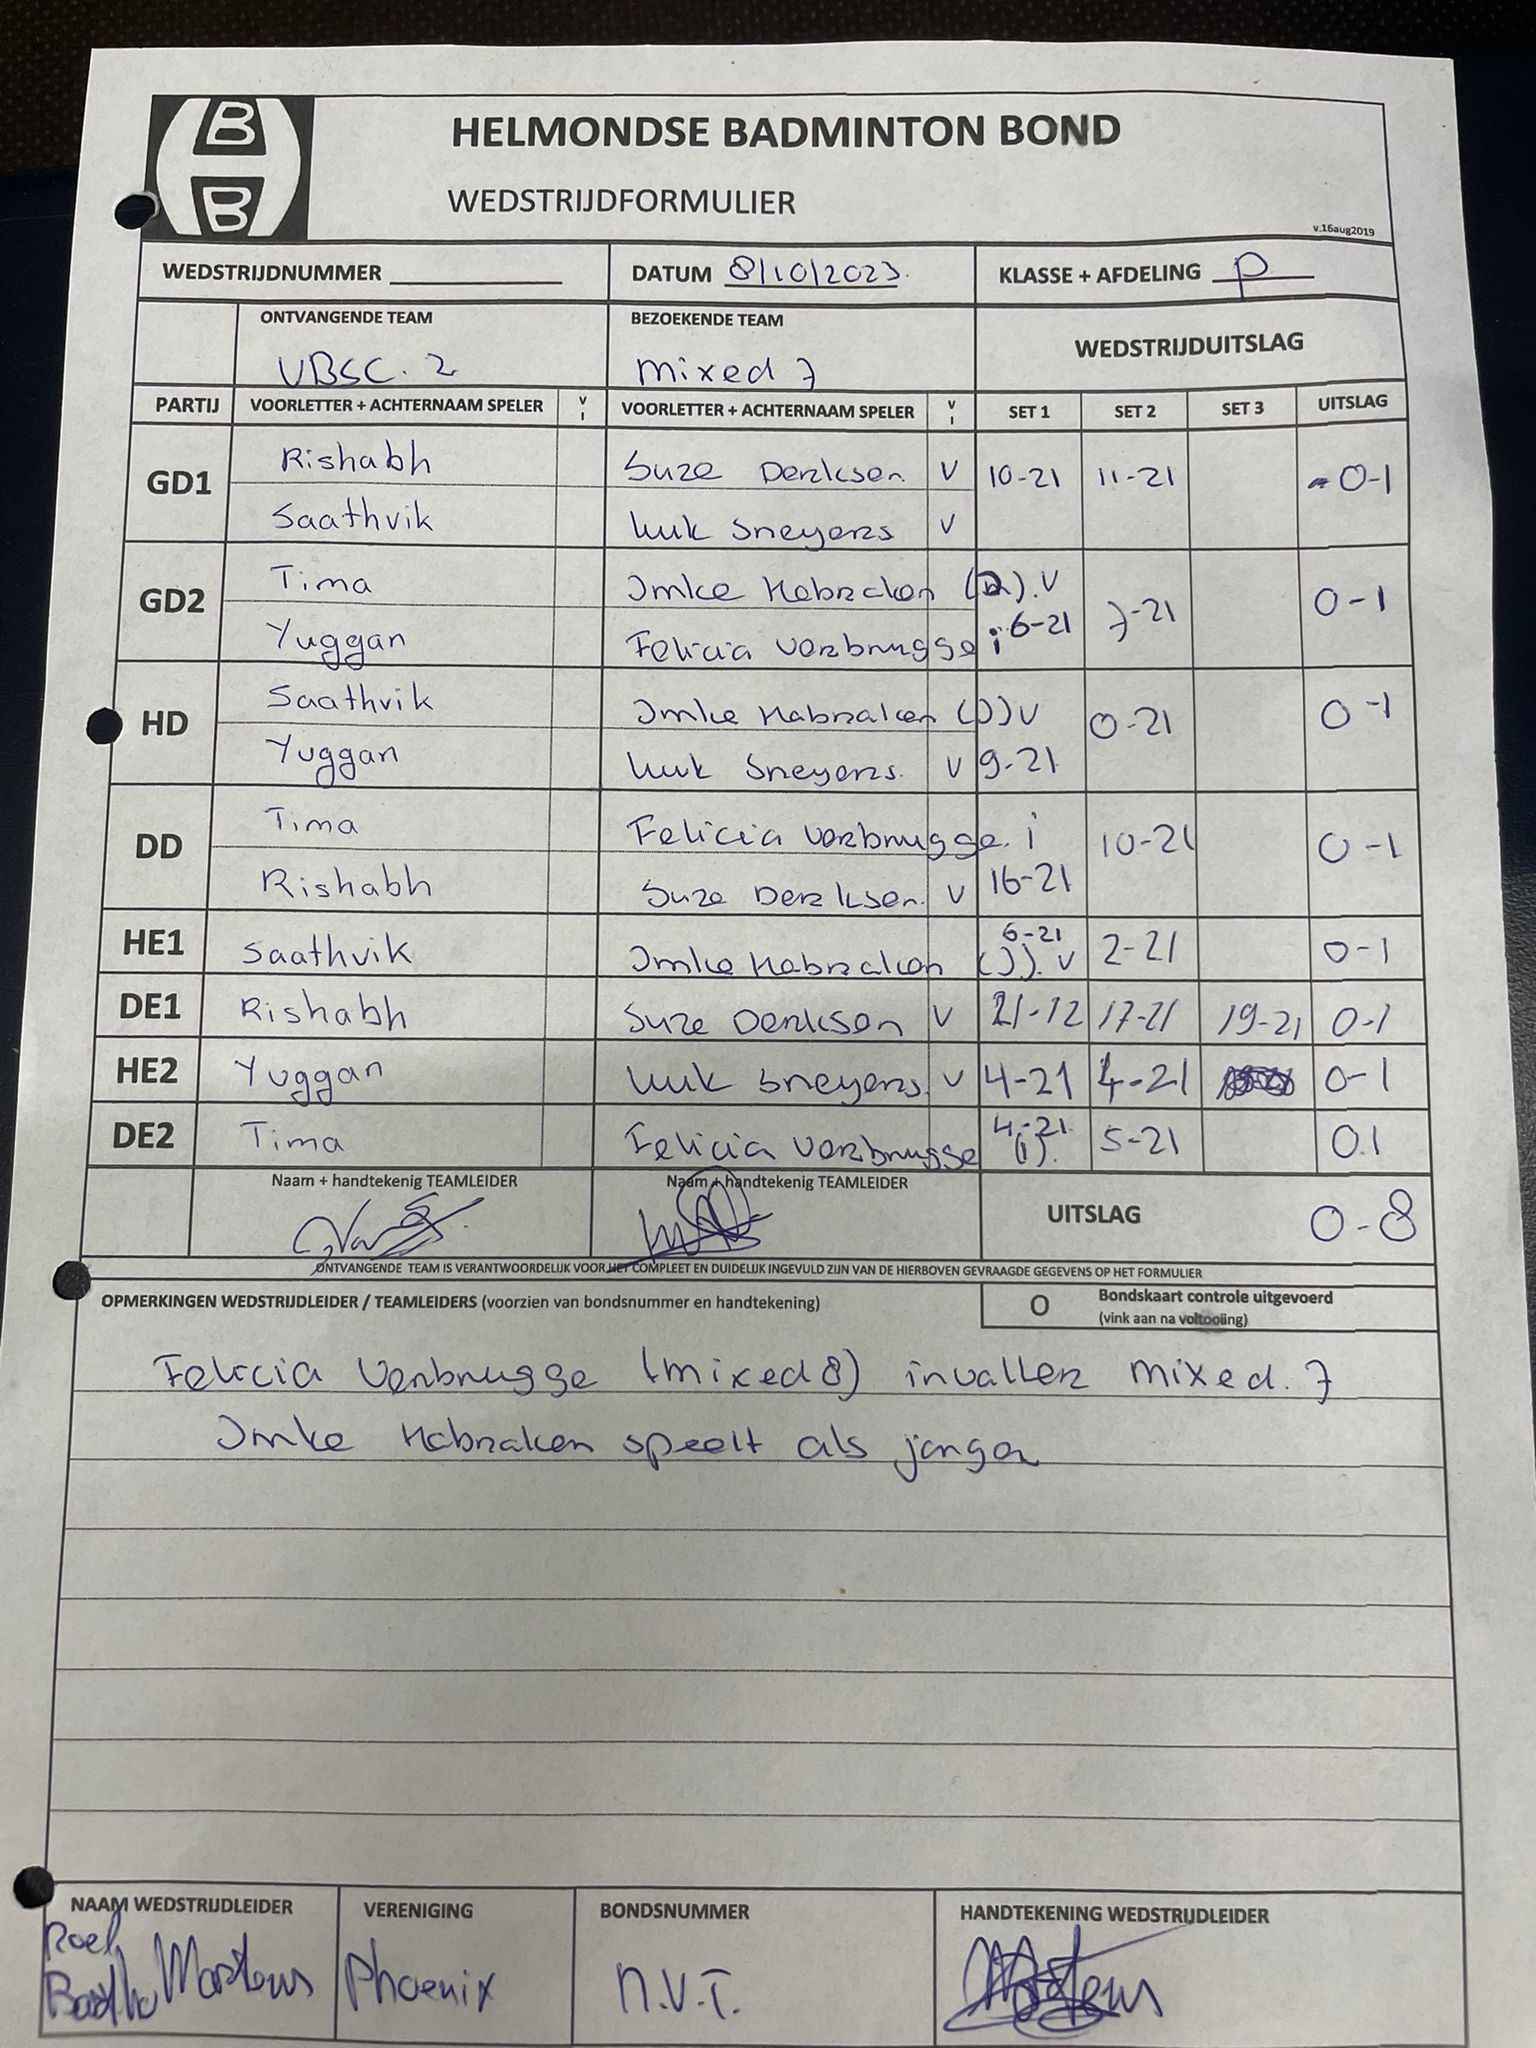 B
B
HELMONDSE BADMINTON BOND
WEDSTRIJDFORMULIER
v.16aug2019
WEDSTRIJDNUMMER DATUM 8/10/2023. KLASSE + AFDELING P
ONTVANGENDE TEAM BEZOEKENDE TEAM WEDSTRIJDUITSLAG
VBSC. 2 mixed 7
PARTIJ VOORLETTER + ACHTERNAAM SPELER V I VOORLETTER + ACHTERNAAM SPELER V I SET 1 SET 2 SET 3 UITSLAG
GD1 Rishabh Suze Derksen V 10-21 11-21 0-1
Saathvik Luuk Sneyers V
GD2 Tima Imke Habraken V 0-1
Yuggan Felicia Verbrugge i 6-21 7-21
HD Saathvik Imke Habraken (J) V 0-21 0-1
Yuggan Luuk Sneyers. V 9-21
DD Tima Felicia Verbrugge. i 10-21 0-1
Rishabh Suze Derksen. V 16-21
HE1 Saathvik Imke Habraken (J). V 6-21 2-21 0-1
DE1 Rishabh Suze Derksen V 21-12 17-21 19-21 0-1
HE2 Yuggan Luuk Sneyers. V 4-21 4-21 0-1
DE2 Tima Felicia Verbrugge (i). 4-21. 5-21 0.1
Naam + handtekenig TEAMLEIDER Naam + handtekenig TEAMLEIDER UITSLAG 0-8
ONTVANGENDE TEAM IS VERANTWOORDELIJK VOOR HET COMPLEET EN DUIDELIJK INGEVULD ZIJN VAN DE HIERBOVEN GEVRAAGDE GEGEVENS OP HET FORMULIER
OPMERKINGEN WEDSTRIJDLEIDER / TEAMLEIDERS (voorzien van bondsnummer en handtekening) O Bondskaart controle uitgevoerd
(vink aan na voltooiing)
Felicia Verbrugge (mixed 8) invaller mixed. 7
Imke Habraken speelt als jongen
NAAM WEDSTRIJDLEIDER VERENIGING BONDSNUMMER HANDTEKENING WEDSTRIJDLEIDER
Roel
Martens Phoenix n.v.t.